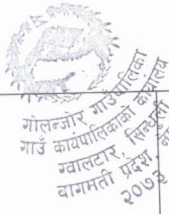 गोलन्जोर गाउँपालिका
गाउँ कार्यपालिकाको कार्यालय
ग्वालटार, सिन्धुली
बागमती प्रदेश
२०७३